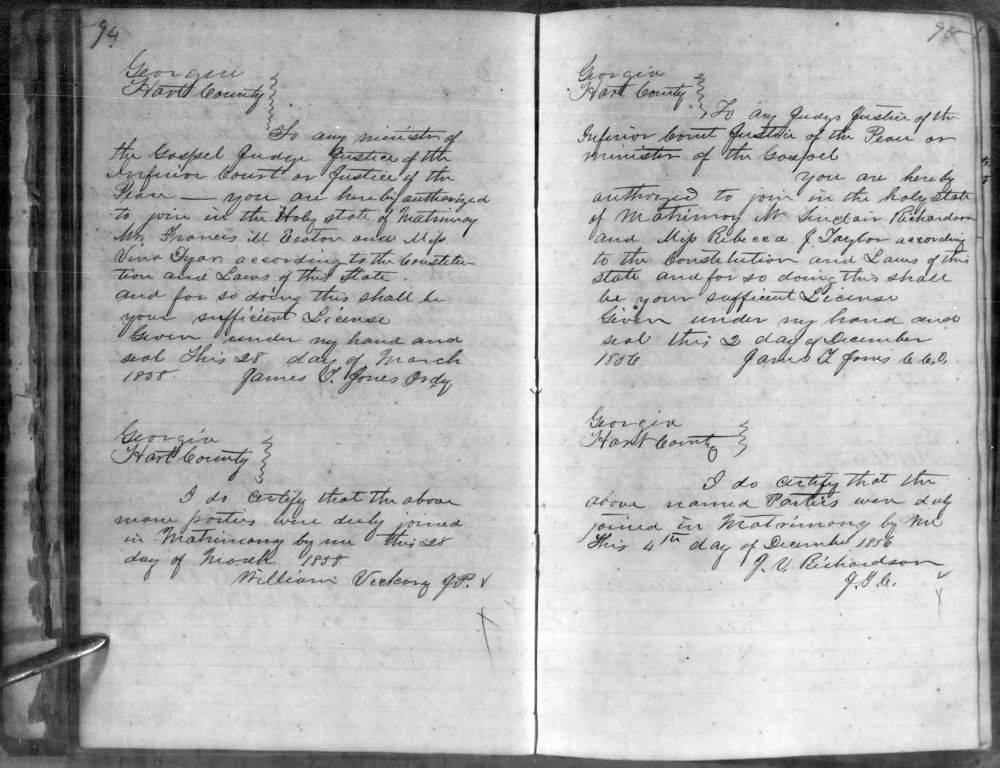 94
Georgia
Hart County
To any minister of
the Gospel Judge Justice of the
Inferior Court or Justice of the
Peace — you are hereby authorized
to join in the Holy state of Matrimony
Mr. Francis M Easton and Miss
Vina Dyar according to the Constitu-
tion and Laws of this State.
and for so doing this shall be
your sufficient License
Given under my hand and
seal This 28 day of March
1858. James T. Jones Ordy
Georgia
Hart County
I do certify that the above
name parties were duly joined
in Matrimony by me this 28
day of March 1858
William Vickory J.P.
95
Georgia
Hart County
To any Judge Justice of the
Inferior Court Justice of the Peace or
minister of the Gospel
you are hereby
authorized to join in the holy state
of Matrimony Mr Sinclair Richardson
and Miss Rebecca J Taylor according
to the Constitution and Laws of this
state and for so doing this shall
be your sufficient License
Given under my hand and
seal this 2 day of December
1856 James T. Jones C.C.O.
Georgia
Hart County
I do certify that the
above named Parties were duly
joined in Matrimony by Me
This 4th day of December 1856
J. V. Richardson
J.I.C.